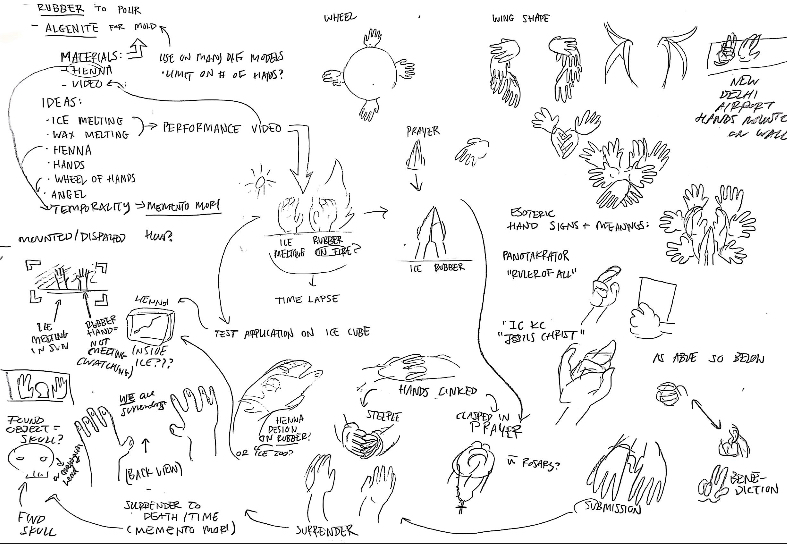 - RUBBER TO POUR
- ALGENITE FOR MOLD
MATERIALS:
- HENNA
- VIDEO
USE ON MANY DIFF MODELS
• LIMIT ON # OF HANDS?
IDEAS:
• ICE MELTING
• WAX MELTING
→ PERFORMANCE VIDEO
• HENNA
• HANDS
• WHEEL OF HANDS
• ANGEL
TEMPORALITY → MEMENTO MORI
WHEEL
WING SHAPE
NEW
DELHI
AIRPORT
HANDS MOUNTED
ON WALL
PRAYER
ICE MELTING
RUBBER ON FIRE?
TIME LAPSE
ICE RUBBER
ESOTERIC
HAND SIGNS + MEANINGS:
PANOTAKRATOR
"RULER OF ALL"
"IC XC
JESUS CHRIST"
AS ABOVE SO BELOW
BENE-
DICTION
MOUNTED/DISPLAYED HOW?
ICE
MELTING
IN SUN
RUBBER
HAND=
NOT
MELTING
(WATCHING)
HENNA!
INSIDE
ICE???
TEST APPLICATION ON ICE CUBE
HENNA
DESIGN
ON RUBBER?
OR ICE TOO?
HANDS LINKED
STEEPLE
CLASPED IN
PRAYER
W ROSARY?
FOUND
OBJECT =
SKULL?
FIND
SKULL
WE ARE
surrendering
(BACK VIEW)
SURRENDER TO
DEATH/TIME
(MEMENTO MORI)
SURRENDER
SUBMISSION